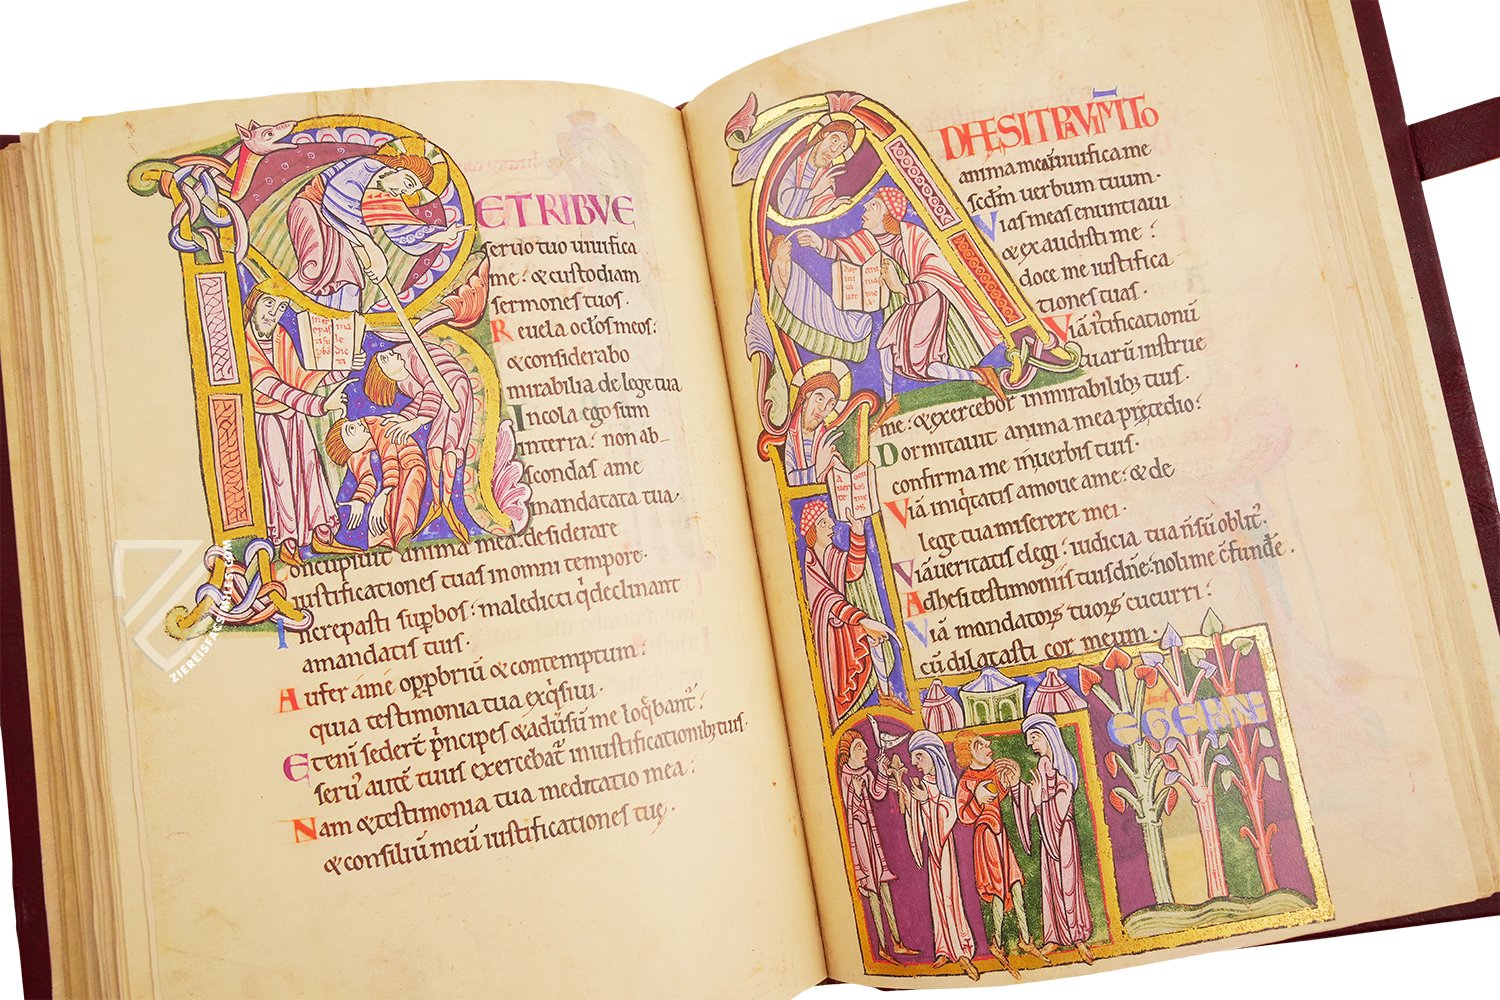 RETRIBVE
seruo tuo uiuifica
me: & custodiam
sermones tuos.
Reuela oc̄los meos:
& considerabo
mirabilia de lege tua
Incola ego sum
interra: non ab-
scondas ame
mandatata tua.
Concupiuit anima mea: desiderare
iustificationes tuas in omni tempore.
Increpasti supb̄os: maledicti q̄ declinant
amandatis tuis.
Aufer áme opp̱briū & contemptum:
quia testimonia tua exq̄siui.
Eteni sedert̄ p̄ncipes & adūsū me loq̄bant̄:
seru' autē tuus exercebat̄ iniustificationib; tuis.
Nam & testimonia tua meditatio mea:
& consiliū meū iustificationes tuę.
inc
repas
ti su
pbo
ma
le
dic
ti
ADHESIT PAVIM̄TO
anima mea: uiuifica me
scd̄m uerbum tuum.
Vias meas enuntiaui
& exaudisti me:
doce me iustifica
tiones tuas.
Viā iustificationū
tuarū instrue
me: & exercebor inmirabilib; tuis.
Dormitauit anima mea p̄ tedio:
confirma me in uerbis tuis.
Viā iniq̄tatis amoue ame: & de
lege tua miserere mei.
Viā ueritatis elegi: iudicia tua n̄ sū oblit'.
Adhesi testimoniis tuis dn̄e: noli me c̄fundē.
Viā mandatoꝝ tuoꝝ cucurri:
cū dilatasti cor meum.
dor
mi
ta
uit
ani
ma
me
a.
A
uer
te
ocu
los
me
os
ZIEREISFACSIMILES.COM